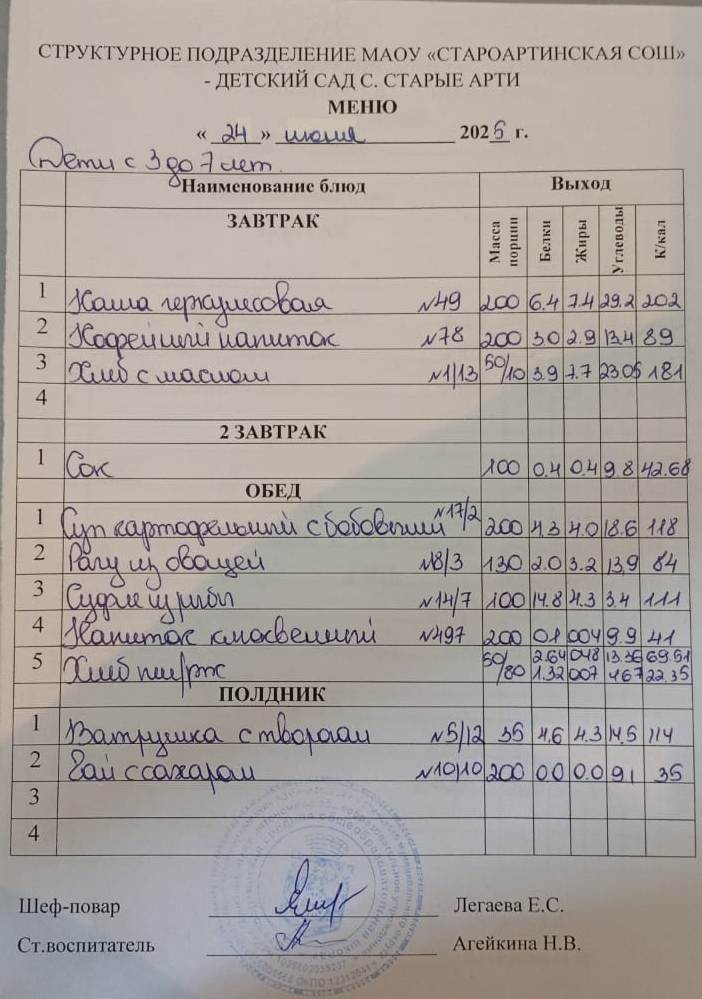 СТРУКТУРНОЕ ПОДРАЗДЕЛЕНИЕ МАОУ «СТАРОАРТИНСКАЯ СОШ»
- ДЕТСКИЙ САД С. СТАРЫЕ АРТИ
МЕНЮ
« 24 » июня 2025 г.
Дети с 3 до 7 лет.
Наименование блюд Выход
ЗАВТРАК Масса порции Белки Жиры Углеводы К/кал
1 Каша геркулесовая №49 200 6.4 7.4 29.2 202
2 Кофейный напиток №78 200 3.0 2.9 13.4 89
3 Хлеб с маслом №1/13 50/10 3.9 7.7 23.05 181
4
2 ЗАВТРАК
1 Сок 100 0.4 0.4 9.8 42.68
ОБЕД
1 Суп картофельный с бобовыми №17/2 200 4.3 4.0 18.6 118
2 Рагу из овощей №8/3 130 2.0 3.2 13.9 84
3 Суфле из рыбы №14/7 100 14.8 4.3 3.4 111
4 Напиток клюквенный №497 200 0.1 0.04 9.9 41
5 Хлеб пш/рж 50/80 2.64 0.48 13.36 69.51
1.32 0.07 4.67 22.35
ПОЛДНИК
1 Ватрушка с творогом №5/12 35 4.6 4.3 14.5 114
2 Чай с сахаром №10/10 200 0.0 0.0 9.1 35
3
4
Шеф-повар Легаева Е.С.
Ст.воспитатель Агейкина Н.В.